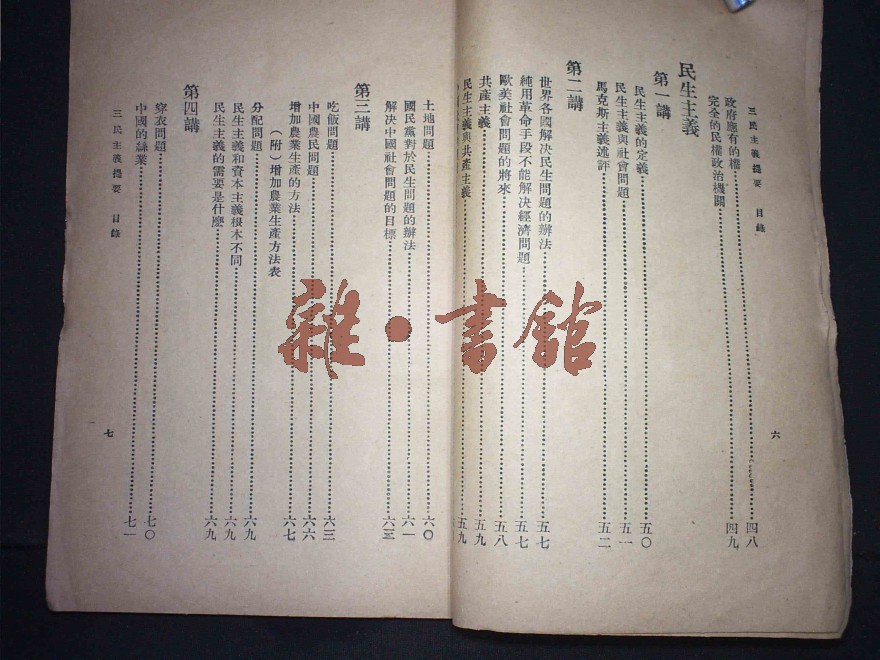 三民主義提要　目錄
政府應有的權……四八
完全的民權政治機關……四九
民生主義
第一講
民生主義的定義……五〇
民生主義與社會問題……五一
馬克斯主義述評……五二
第二講
世界各國解決民生問題的辦法……五七
純用革命手段不能解決經濟問題……五七
歐美社會問題的將來……五八
共產主義……五九
民生主義與共產主義……五九
六
土地問題……六〇
國民黨對於民生問題的辦法……六一
解決中國社會問題的目標……六三
第三講
吃飯問題……六三
中國農民問題……六六
增加農業生產的方法……六七
（附）增加農業生產方法表
分配問題……六九
民生主義和資本主義根本不同……六九
民生主義的需要是什麼……六九
第四講
穿衣問題……七〇
中國的絲業……七一
三民主義提要　目錄
七
雜·書館